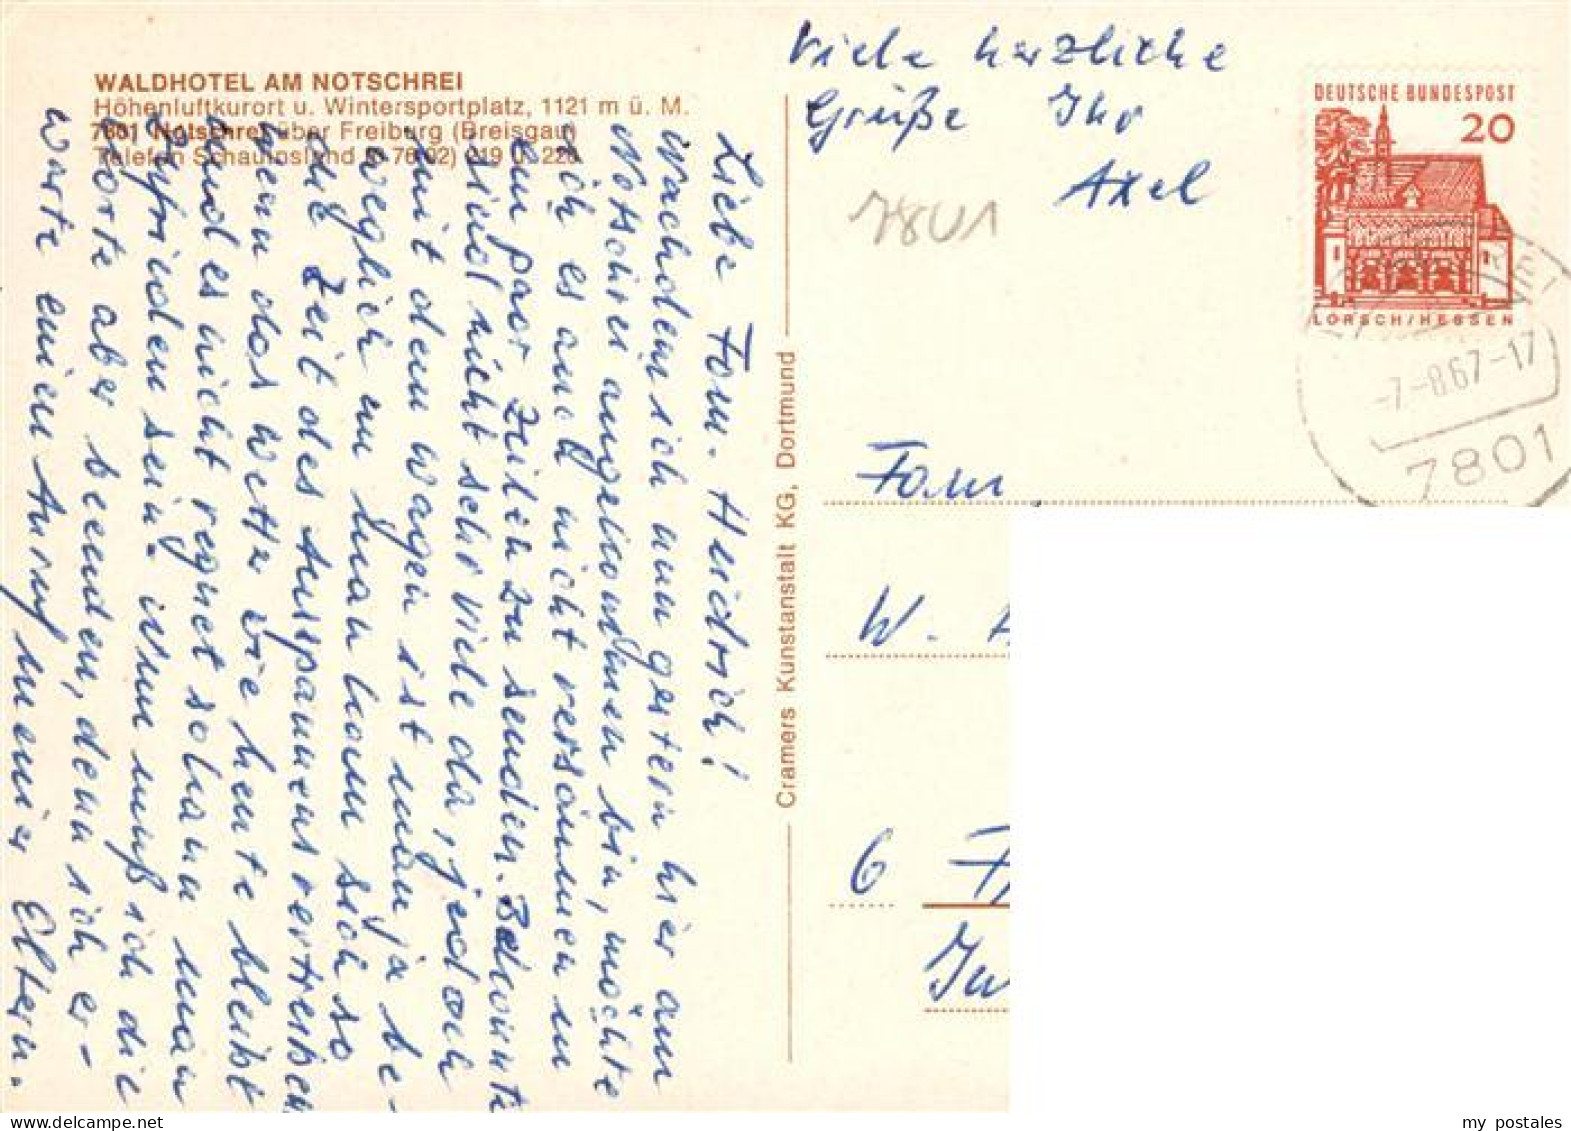 WALDHOTEL AM NOTSCHREI
Höhenluftkurort u. Wintersportplatz, 1121 m ü. M.
7801 Notschrei über Freiburg (Breisgau)
Telefon Schauinsland (0 76 02) 219 u. 220
Liebe Fam. Heidrich!
Nachdem ich nun gestern hier am
Notschrei angekommen bin, möchte
ich es auch nicht versäumen
ein paar Zeilen zu senden. Bekannte
sind nicht sehr viele da, jedoch
mit dem Wagen ist man ja be-
weglich um man kann sich so
die Zeit des Ausspannens vertreiben
wenn das Wetter wie heute bleibt
und es nicht regnet sokann man
zufrieden sein. Nun muß ich die
Karte aber beenden, denn ich er-
warte einen Anruf meiner Eltern.
Viele herzliche
Grüße Ihr
Axel
7801
Cramers Kunstanstalt KG, Dortmund
DEUTSCHE BUNDESPOST
20
LORSCH/HESSEN
-7.-8.67-17
7801
Fam.
W.
6
my_postales